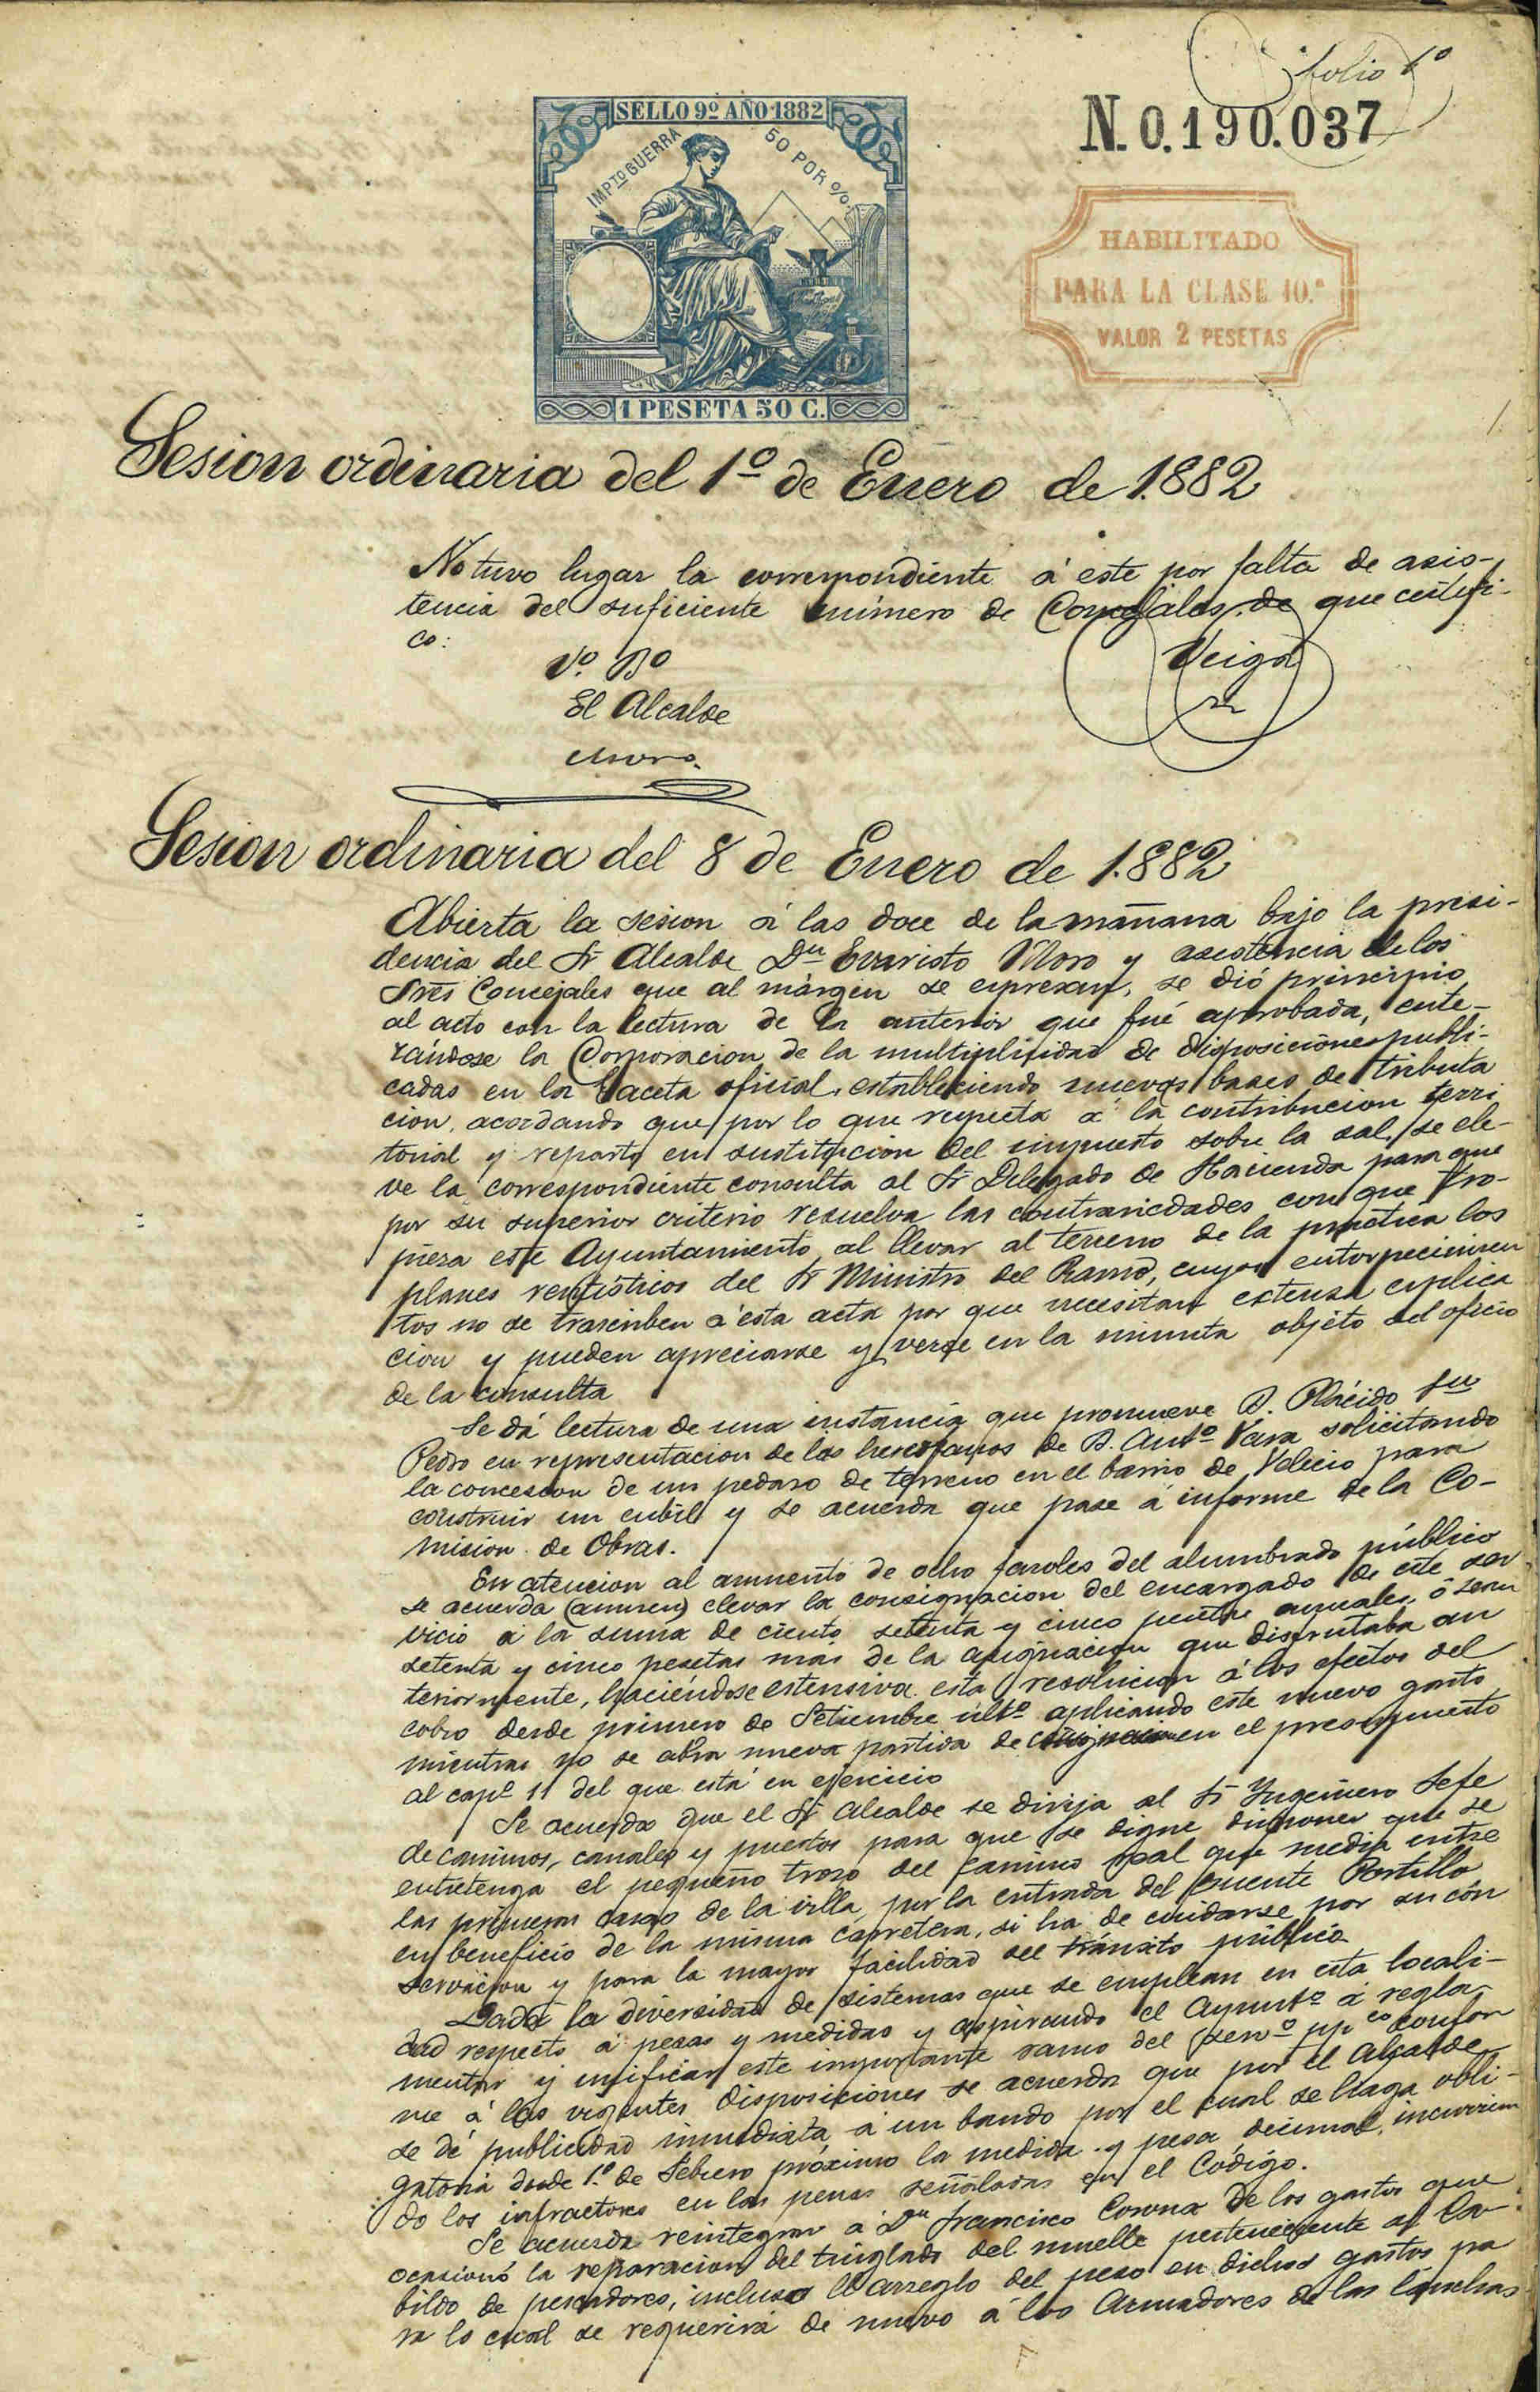 folio 1º
N. 0.190.037
SELLO 9º AÑO 1882
IMPTO GUERRA 50 POR %.
HABILITADO
PARA LA CLASE 10.ª
VALOR 2 PESETAS
1 PESETA 50 C.
Sesion ordinaria del 1º de Enero de 1.882
No tuvo lugar la correspondiente á este por falta de asis-
tencia del suficiente número de Concejales, de que certifi-
co:
Veiga
Vº. Bº
El Alcalde
Moro
Sesion ordinaria del 8 de Enero de 1.882
Abierta la sesion á las doce de la mañana bajo la presi-
dencia del Sr Alcalde Dn Evaristo Moro y asistencia de los
Sres Concejales que al márgen se expresan, se dió principio
al acto con la lectura de la anterior que fué aprobada, ente-
rándose la Corporacion de la multiplicidad de disposiciones publi-
cadas en la Gaceta oficial, estableciendo nuevas bases de tributa
cion, acordando que por lo que respecta á la contribucion terri
torial y reparto en sustitucion del impuesto sobre la sal, se ele-
ve la correspondiente consulta al Sr Delegado de Hacienda para que
por su superior criterio resuelva las contrariedades con que tro-
pieza este Ayuntamiento al llevar al terreno de la práctica los
planes rentísticos del Sr Ministro del Ramo, cuyos entorpecimien
tos no se trascriben á ésta acta por que necesitan extensa esplica
cion y pueden apreciarse y verse en la minuta objeto del oficio
de la consulta
Se dá lectura de una instancia que promueve D. Plácido Sn
Pedro en representacion de los herederos de D. Antº Vara solicitando
la concesion de un pedazo de terreno en el barrio de Velicio para
construir un cubil y se acuerda que pase á informe de la Co-
mision de Obras.
En atencion al aumento de ocho faroles del alumbrado público
se acuerda (aumen) elevar la consignacion del encargado de este ser
vicio á la suma de ciento setenta y cinco pesetas anuales, ó sean
setenta y cinco pesetas mas de la asignacion que disfrutaba an
teriormente, haciéndose estensiva esta resolucion á los efectos del
cobro desde primero de Setiembre últº aplicando este nuevo gasto
mientras no se abra nueva partida de consignacion en el presupuesto
al capº 11 del que está en ejercicio
Se acuerda que el Sr Alcalde se dirija al Sr Yngeniero Jefe
de caminos, canales y puertos para que se digne disponer que se
entretenga el pequeño trozo del camino real que media entre
las primeras casas de la villa, por la entrada del puente Portillo
en beneficio de la misma carretera, si ha de cuidarse por su con
servacion y para la mayor facilidad del tránsito público
Dada la diversidad de sistemas que se emplean en esta locali-
dad respecto á pesas y medidas y aspirando el Ayuntº á regla-
mentar y unificar este importante ramo del serº ppco confor
me á las vigentes disposiciones se acuerda que por el Alcalde
se dé publicidad inmediata á un bando por el cual se haga obli-
gatoria desde 1º de Febrero próximo la medida y pesa decimal, incurrien
do los infractores en las penas señaladas en el Código.
Se acuerda reintegrar á Dn Francisco Corona de los gastos que
ocasionó la reparacion del tinglado del muelle perteneciente al Ca-
bildo de pescadores, incluso el arreglo del peso en dichos gastos pa
ra lo cual se requerirá de nuevo á los Armadores de las lanchas